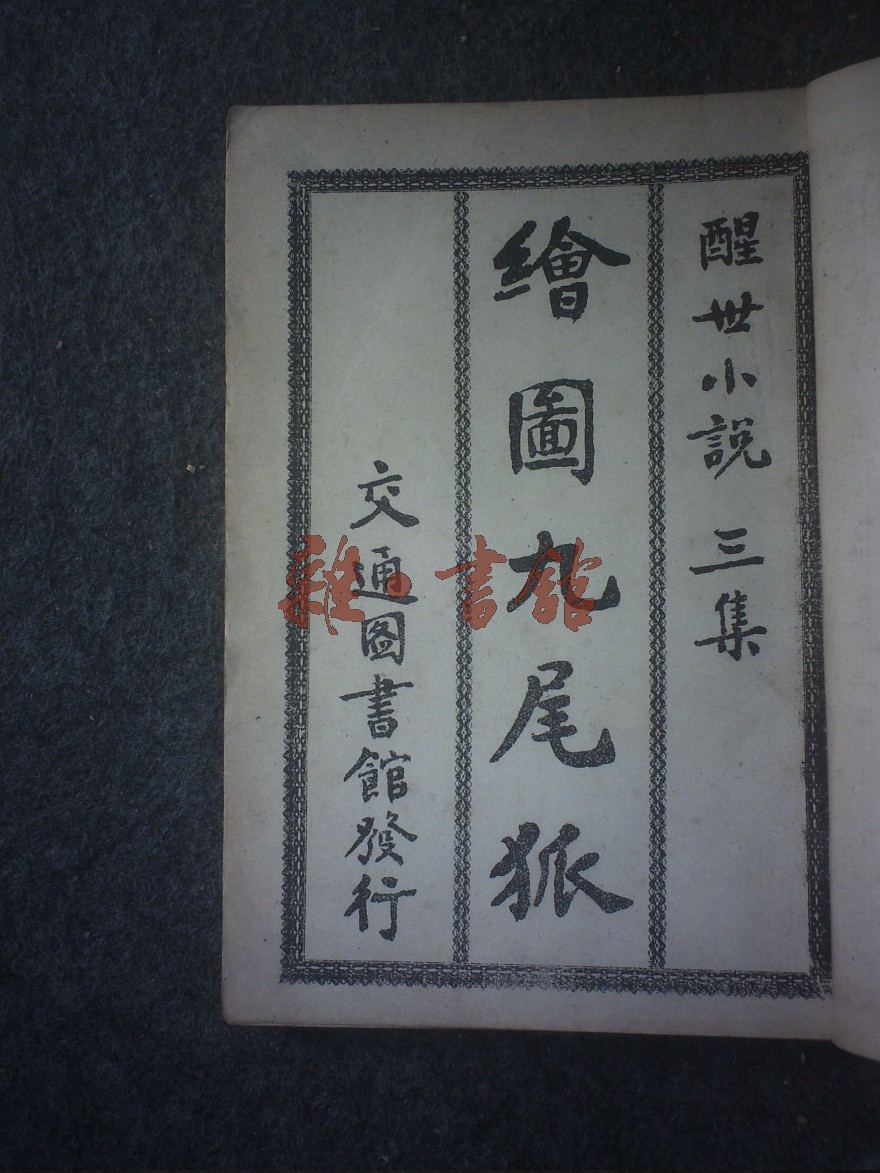 醒世小説 三集
繪圖九尾狐
交通圖書館發行
雜·書館